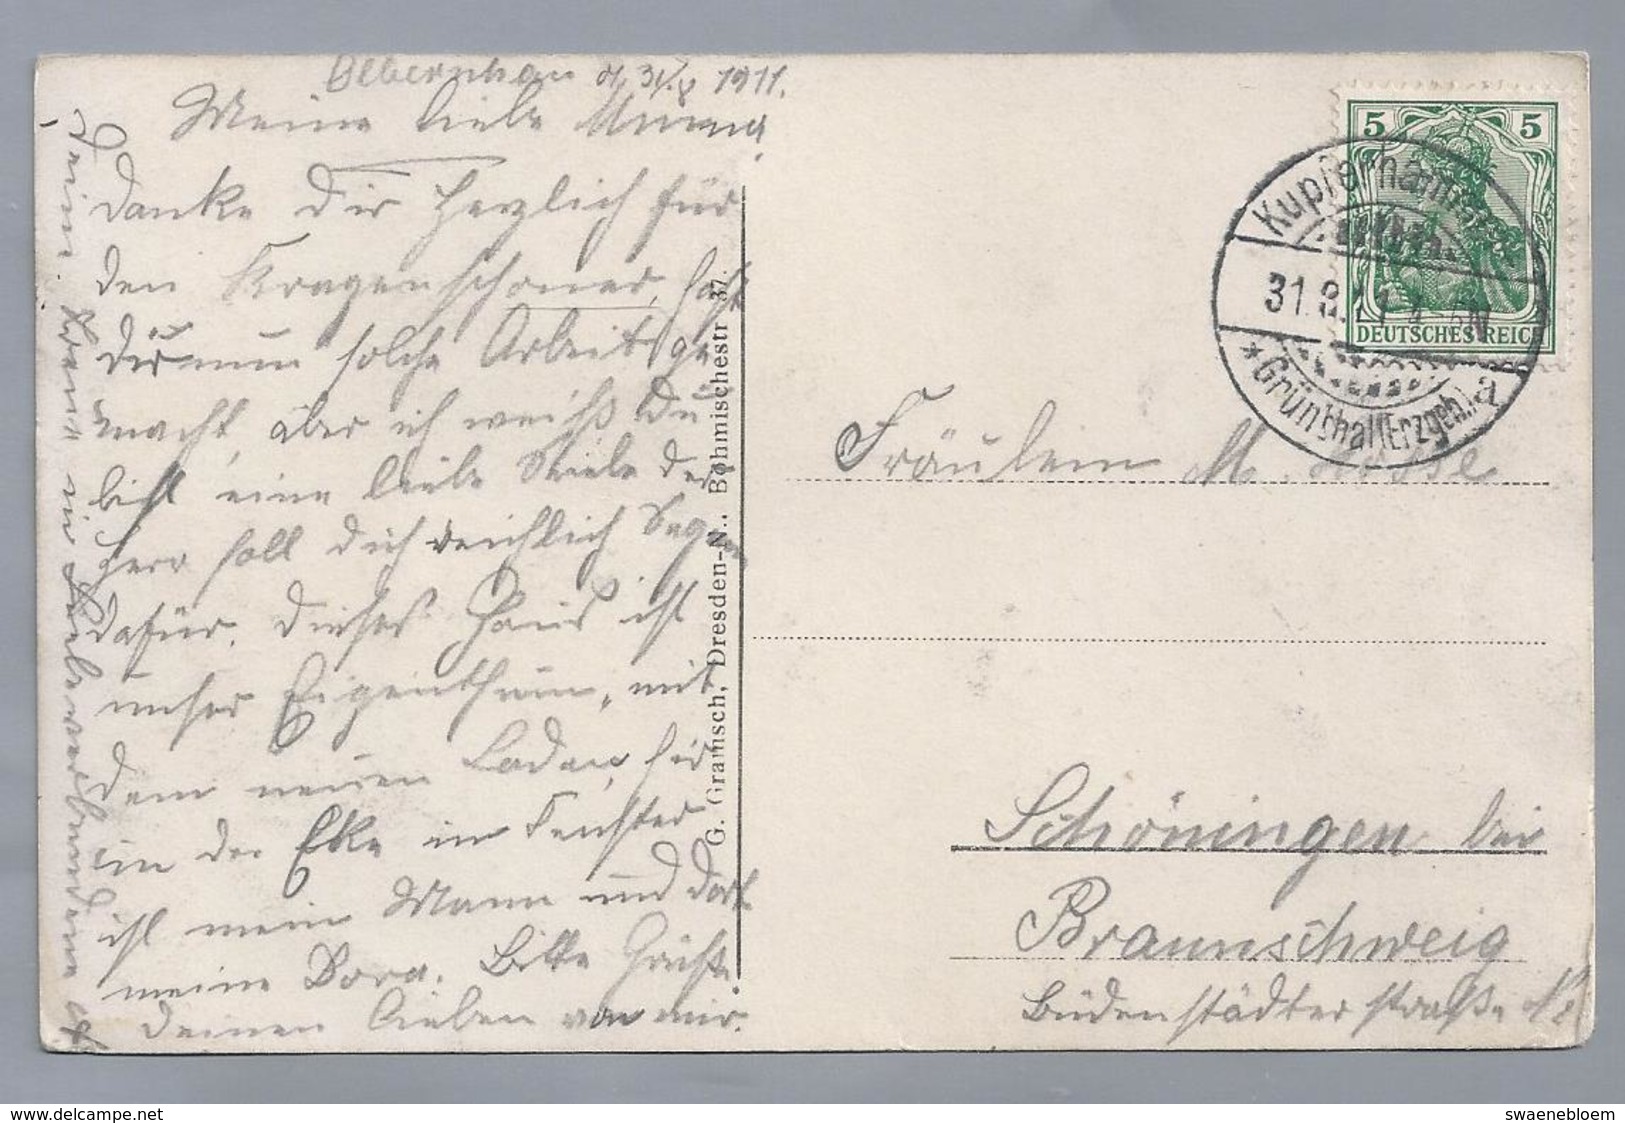 Olbernhau d. 31.8 1911.
Meine liebe Minna!
Danke Dir herzlich für
den Kragenschoner, hast
Dir nun solche Arbeit ge
macht, aber ich weiß Du
bist eine liebe Seele der
Herr soll dich reichlich Segnen
dafür. Dieses Haus ist
unser Eigenthum, mit
dem neuen Laden, hier
in der Eke im Fenster
ist mein Mann und dort
meine Dora. Bitte Grüße
deinen Lieben von mir.
Deine in Liebe verbundene
G. Gramsch, Dresden-N., Böhmischestr 37.
5 5
DEUTSCHES REICH
Kupferhammer
31.8.11 4-5N
* Grünthal (Erzgeb.) a
Fräulein M.
Schöningen bei
Braunschweig
Büdenstädter straße
swaenebloem
www.delcampe.net